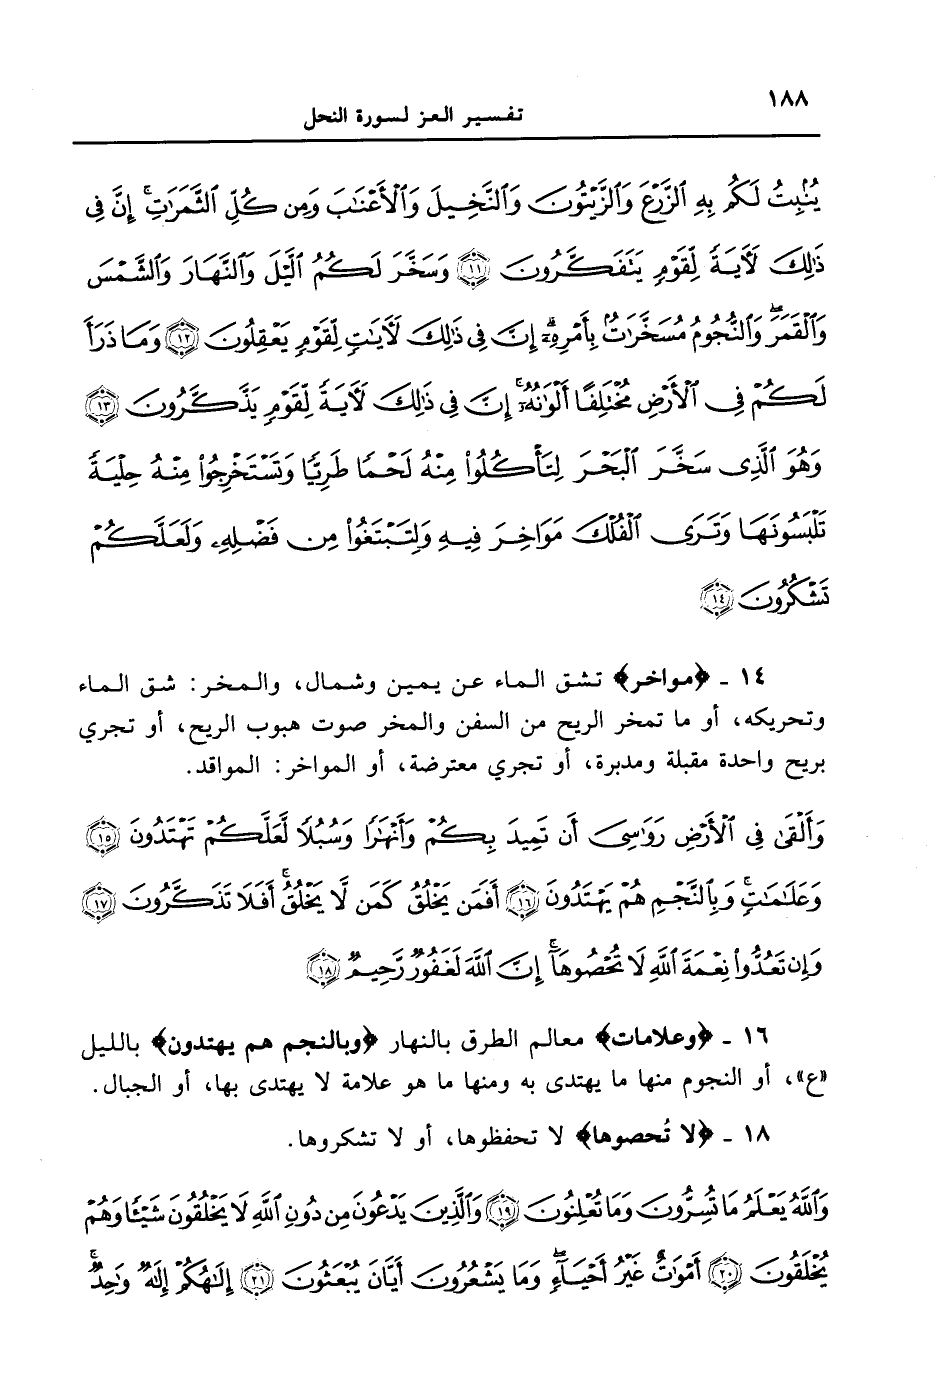 ١٨٨
تفسير العز لسورة النحل
يُنۢبِتُ لَكُم بِهِ ٱلزَّرْعَ وَٱلزَّيْتُونَ وَٱلنَّخِيلَ وَٱلْأَعْنَٰبَ وَمِن كُلِّ ٱلثَّمَرَٰتِ ۗ إِنَّ فِى
ذَٰلِكَ لَءَايَةً لِّقَوْمٍ يَتَفَكَّرُونَ ١١ وَسَخَّرَ لَكُمُ ٱلَّيْلَ وَٱلنَّهَارَ وَٱلشَّمْسَ
وَٱلْقَمَرَ ۖ وَٱلنُّجُومُ مُسَخَّرَٰتٌۢ بِأَمْرِهِۦٓ ۗ إِنَّ فِى ذَٰلِكَ لَءَايَٰتٍ لِّقَوْمٍ يَعْقِلُونَ ١٢ وَمَا ذَرَأَ
لَكُمْ فِى ٱلْأَرْضِ مُخْتَلِفًا أَلْوَٰنُهُۥٓ ۗ إِنَّ فِى ذَٰلِكَ لَءَايَةً لِّقَوْمٍ يَذَّكَّرُونَ ١٣
وَهُوَ ٱلَّذِى سَخَّرَ ٱلْبَحْرَ لِتَأْكُلُوا۟ مِنْهُ لَحْمًا طَرِيًّا وَتَسْتَخْرِجُوا۟ مِنْهُ حِلْيَةً
تَلْبَسُونَهَا وَتَرَى ٱلْفُلْكَ مَوَاخِرَ فِيهِ وَلِتَبْتَغُوا۟ مِن فَضْلِهِۦ وَلَعَلَّكُمْ
تَشْكُرُونَ ١٤
١٤ ـ ﴿مواخر﴾ تشق الماء عن يمين وشمال، والمخر: شق الماء
وتحريكه، أو ما تمخر الريح من السفن والمخر صوت هبوب الريح، أو تجري
بريح واحدة مقبلة ومدبرة، أو تجري معترضة، أو المواخر: المواقد.
وَأَلْقَىٰ فِى ٱلْأَرْضِ رَوَٰسِىَ أَن تَمِيدَ بِكُمْ وَأَنْهَٰرًا وَسُبُلًا لَّعَلَّكُمْ تَهْتَدُونَ ١٥
وَعَلَٰمَٰتٍ ۚ وَبِٱلنَّجْمِ هُمْ يَهْتَدُونَ ١٦ أَفَمَن يَخْلُقُ كَمَن لَّا يَخْلُقُ ۗ أَفَلَا تَذَكَّرُونَ ١٧
وَإِن تَعُدُّوا۟ نِعْمَةَ ٱللَّهِ لَا تُحْصُوهَآ ۗ إِنَّ ٱللَّهَ لَغَفُورٌ رَّحِيمٌ ١٨
١٦ ـ ﴿وعلامات﴾ معالم الطرق بالنهار ﴿وبالنجم هم يهتدون﴾ بالليل
«ع»، أو النجوم منها ما يهتدى به ومنها ما هو علامة لا يهتدى بها، أو الجبال.
١٨ ـ ﴿لا تُحصوها﴾ لا تحفظوها، أو لا تشكروها.
وَٱللَّهُ يَعْلَمُ مَا تُسِرُّونَ وَمَا تُعْلِنُونَ ١٩ وَٱلَّذِينَ يَدْعُونَ مِن دُونِ ٱللَّهِ لَا يَخْلُقُونَ شَيْـًٔا وَهُمْ
يُخْلَقُونَ ٢٠ أَمْوَٰتٌ غَيْرُ أَحْيَآءٍ ۖ وَمَا يَشْعُرُونَ أَيَّانَ يُبْعَثُونَ ٢١ إِلَٰهُكُمْ إِلَٰهٌ وَٰحِدٌ ۚ